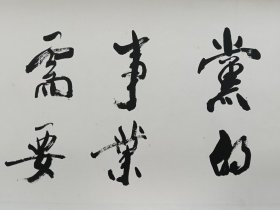 黨的
事業
需要